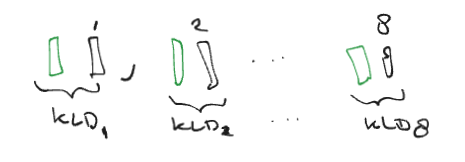 1 2 8
, ... 
KLD₁ KLD₂ ... KLD8